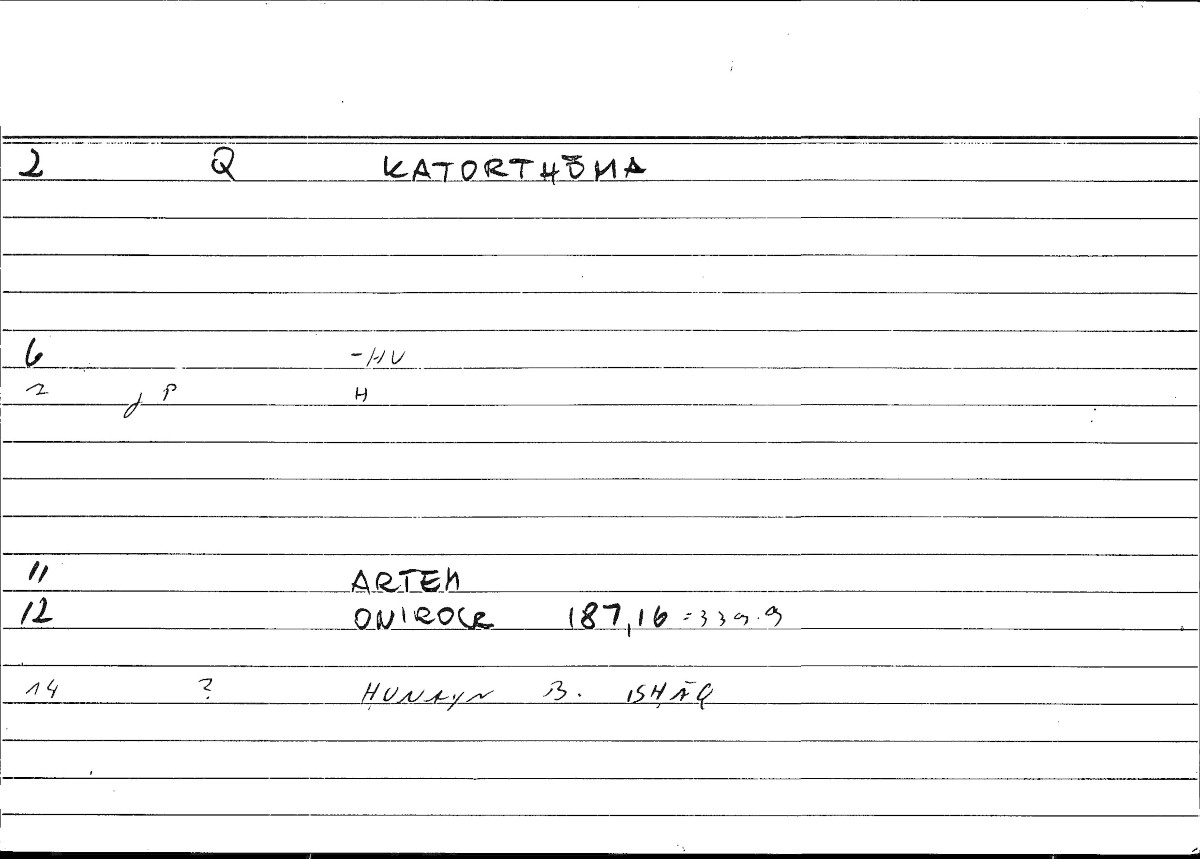 2 Q KATORTHŌMA
6 -HU
2 d P H
11 ARTEM
12 ONIROCR 187,16 = 339.9
14 ? ḤUNAYN B. ISḤĀQ